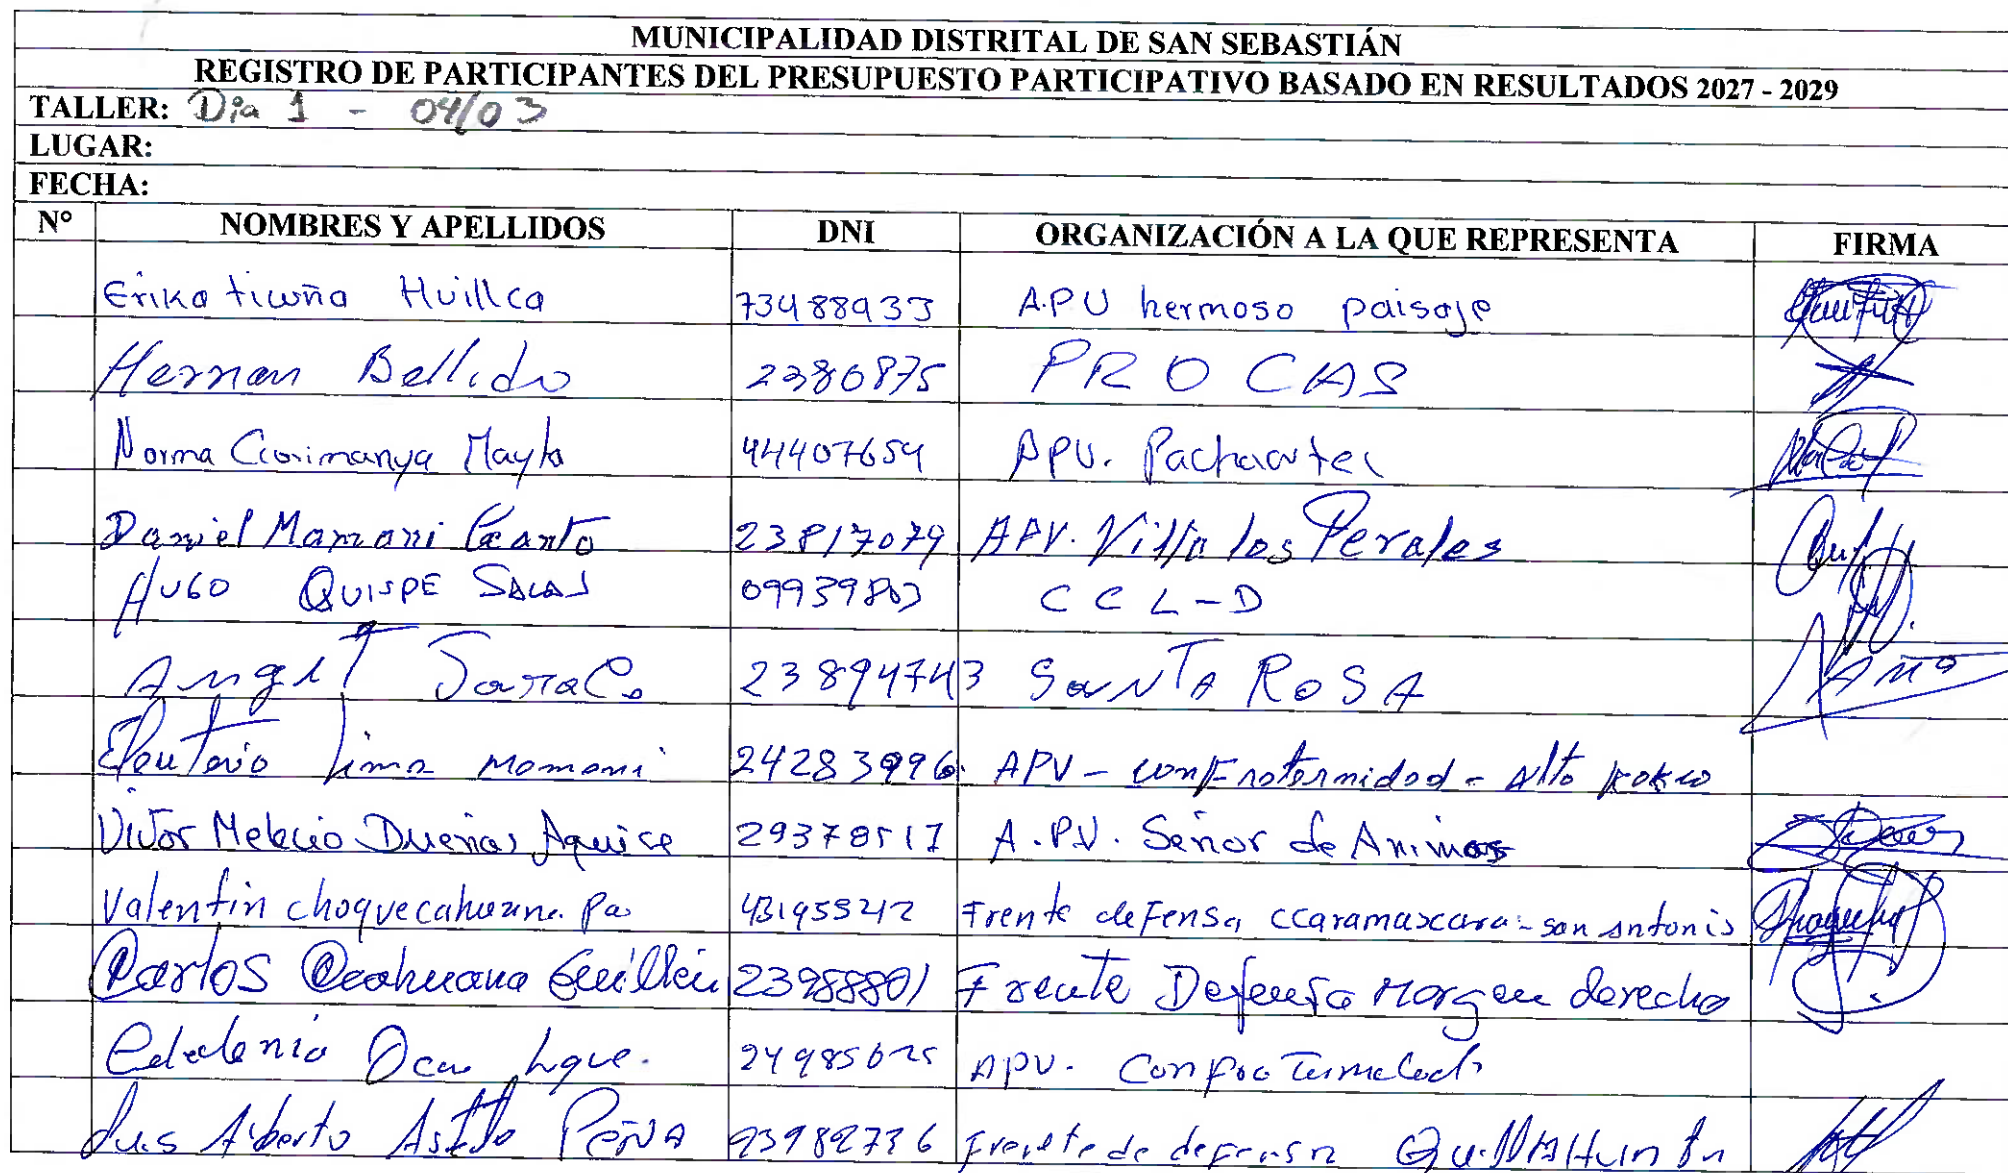 MUNICIPALIDAD DISTRITAL DE SAN SEBASTIÁN
REGISTRO DE PARTICIPANTES DEL PRESUPUESTO PARTICIPATIVO BASADO EN RESULTADOS 2027 - 2029
TALLER: Dia 1 - 04/03
LUGAR:
FECHA:
N° NOMBRES Y APELLIDOS DNI ORGANIZACIÓN A LA QUE REPRESENTA FIRMA
Erika ticuña Huillca 73488933 A.P.U hermoso paisaje
Hernan Bellido 2380875 PROCAS
Norma Ccorimanya Mayta 44407654 APV.
Daniel Mamani 23817079 APV. Villa los Perales
HUGO QUISPE SALAS 09939803 CCL-D
23894743 SANTA ROSA
Eleuterio lima mamani 24283996 APV - confraternidad - Alto
Victor Melecio Dueñas Aquise 29378517 A.P.V. Señor de Animas
Valentin 43195542 Frente deFensa - san antonio
Carlos Ccahuana Guillen 23988801 Frente Defensa Margen derecha
APV.
Luis Alberto PEÑA 23982736 Frente de defensa